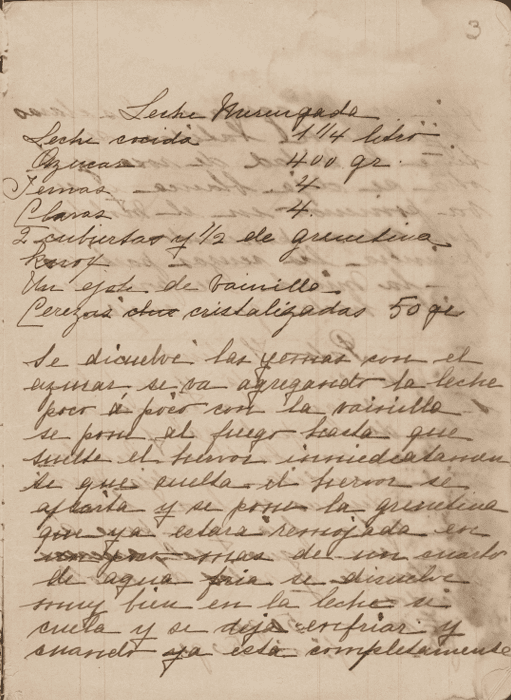 3
Leche Merengada
Leche cocida 1 1/4 litro
Azucar 400 gr.
Yemas 4
Claras 4
2 cubiertas y 1/2 de grenetina
knox
Un ejote de vainilla
Cerezas cristalizadas 50 gr
Se dicuelve las yemas con el
azucar se va agregando la leche
poco á poco con la vainilla
se pone al fuego hasta que
suelte el hervor inmediatamen
te que suelta el hervor se
aparta y se pone la grenetina
que ya estara remojada en
un poco mas de un cuarto
de agua fria se disuelve
muy bien en la leche se
cuela y se deja enfriar y
cuando ya esta completamente